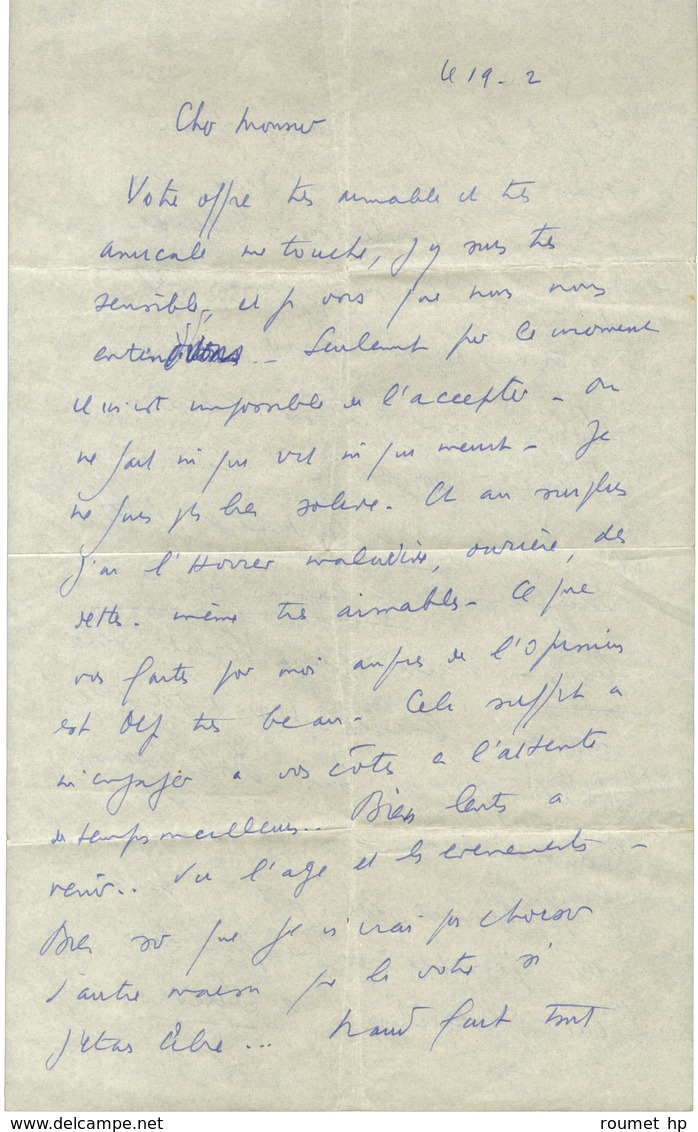 le 19 - 2
Cher Monsieur
Votre offre très aimable et très
amicale me touche, j'y suis très
sensible, et je vois que nous nous
entendons - Seulement pour le moment
il m'est impossible de l'accepter - on
ne sait ni qui vit ni qui meurt - Je
ne suis pas très solide. Et au surplus
j'ai l'Horreur maladive, ouvrière, des
dettes - même très aimables - Ce que
vous faites pour moi auprès de l'Opinion
est déjà très beau - Cela suffit à
m'engager à vos côtés à l'attente
de temps meilleurs.. Bien lents à
venir.. Vu l'age et les evenements -
Bien sûr que je n'irai pas choisir
d'autre maison que la votre si
j'étais libre ... faut tout
www.delcampe.net
roumet hp